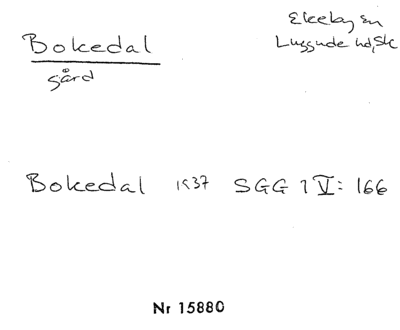 Bokedal
gård
Ekeby sn
Luggude hd, Sk
Bokedal 1937 SGG 1 V: 166
Nr 15880